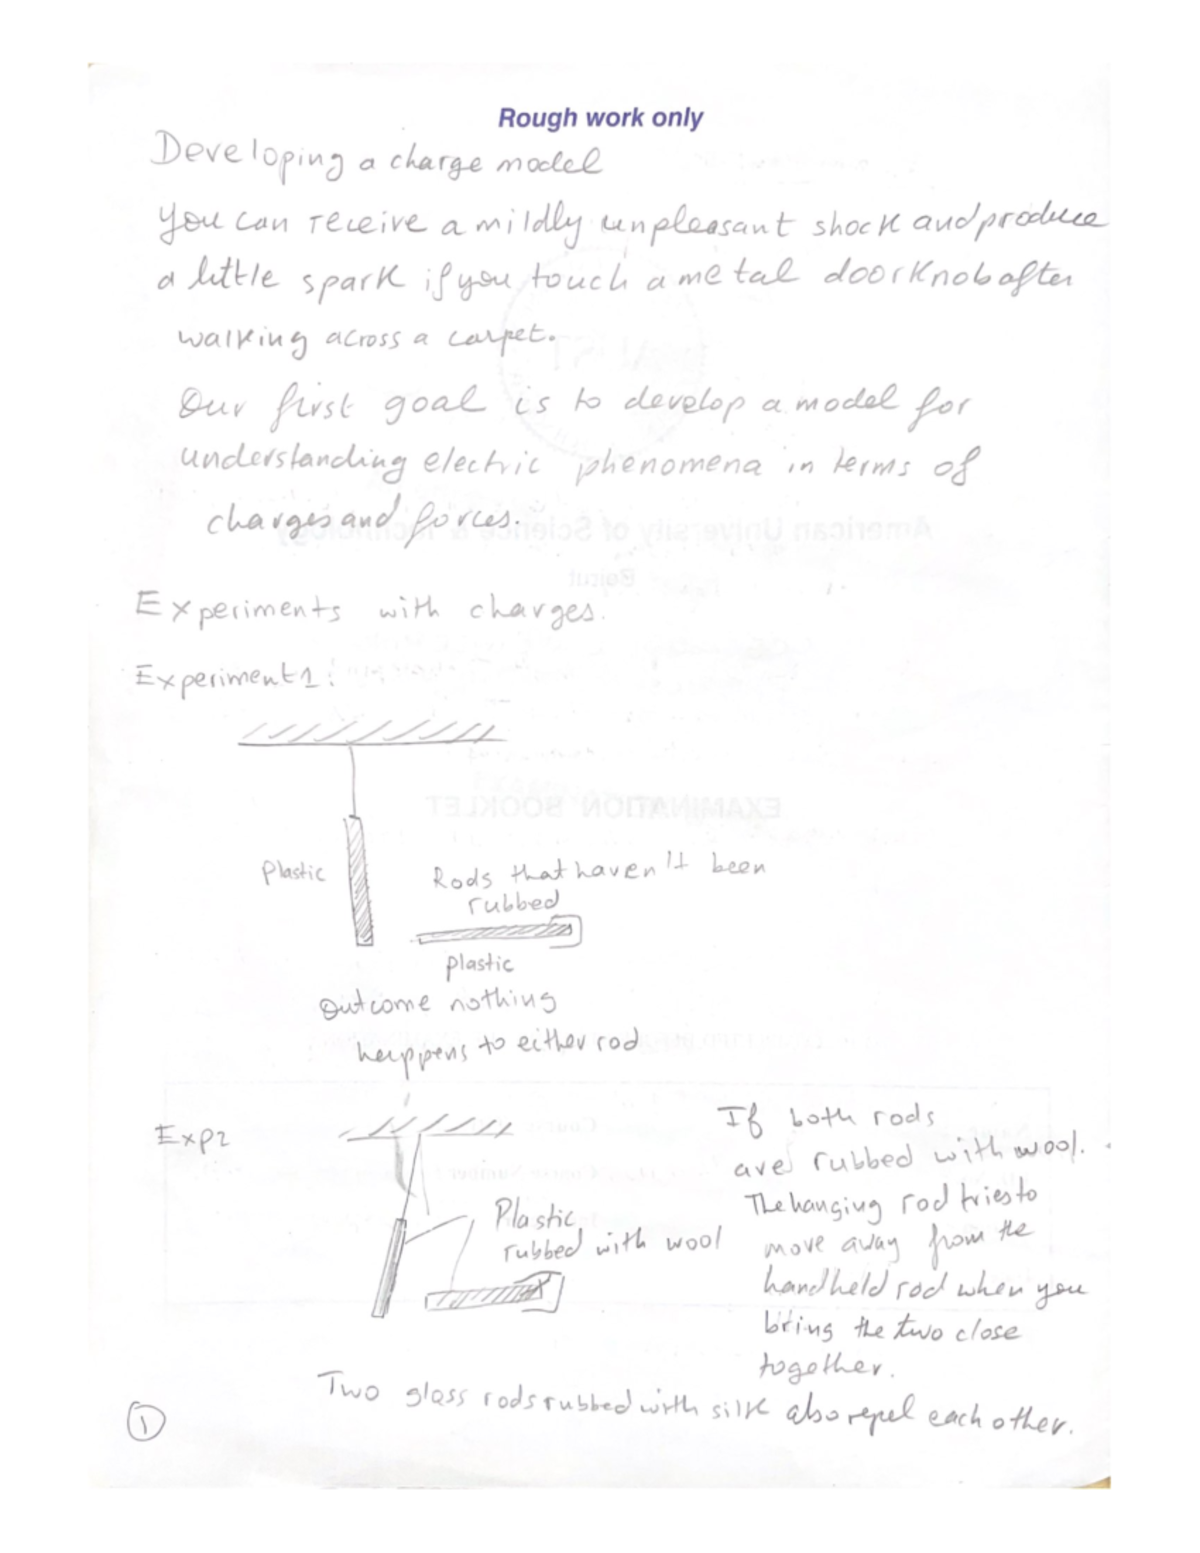 Rough work only
Developing a charge model
You can receive a mildly unpleasant shock and produce
a little spark if you touch a metal doorknob after
walking across a carpet.
Our first goal is to develop a model for
understanding electric phenomena in terms of
charges and forces.
American University of Science & Technology
Beirut
Experiments with charges.
Experiment 1:
EXAMINATION BOOKLET
Plastic
Rods that haven't been
rubbed
plastic
Outcome nothing
happens to either rod
Exp2
Plastic
rubbed with wool
If both rods
are rubbed with wool.
The hanging rod tries to
move away from the
handheld rod when you
bring the two close
together.
Two glass rods rubbed with silk also repel each other.
1